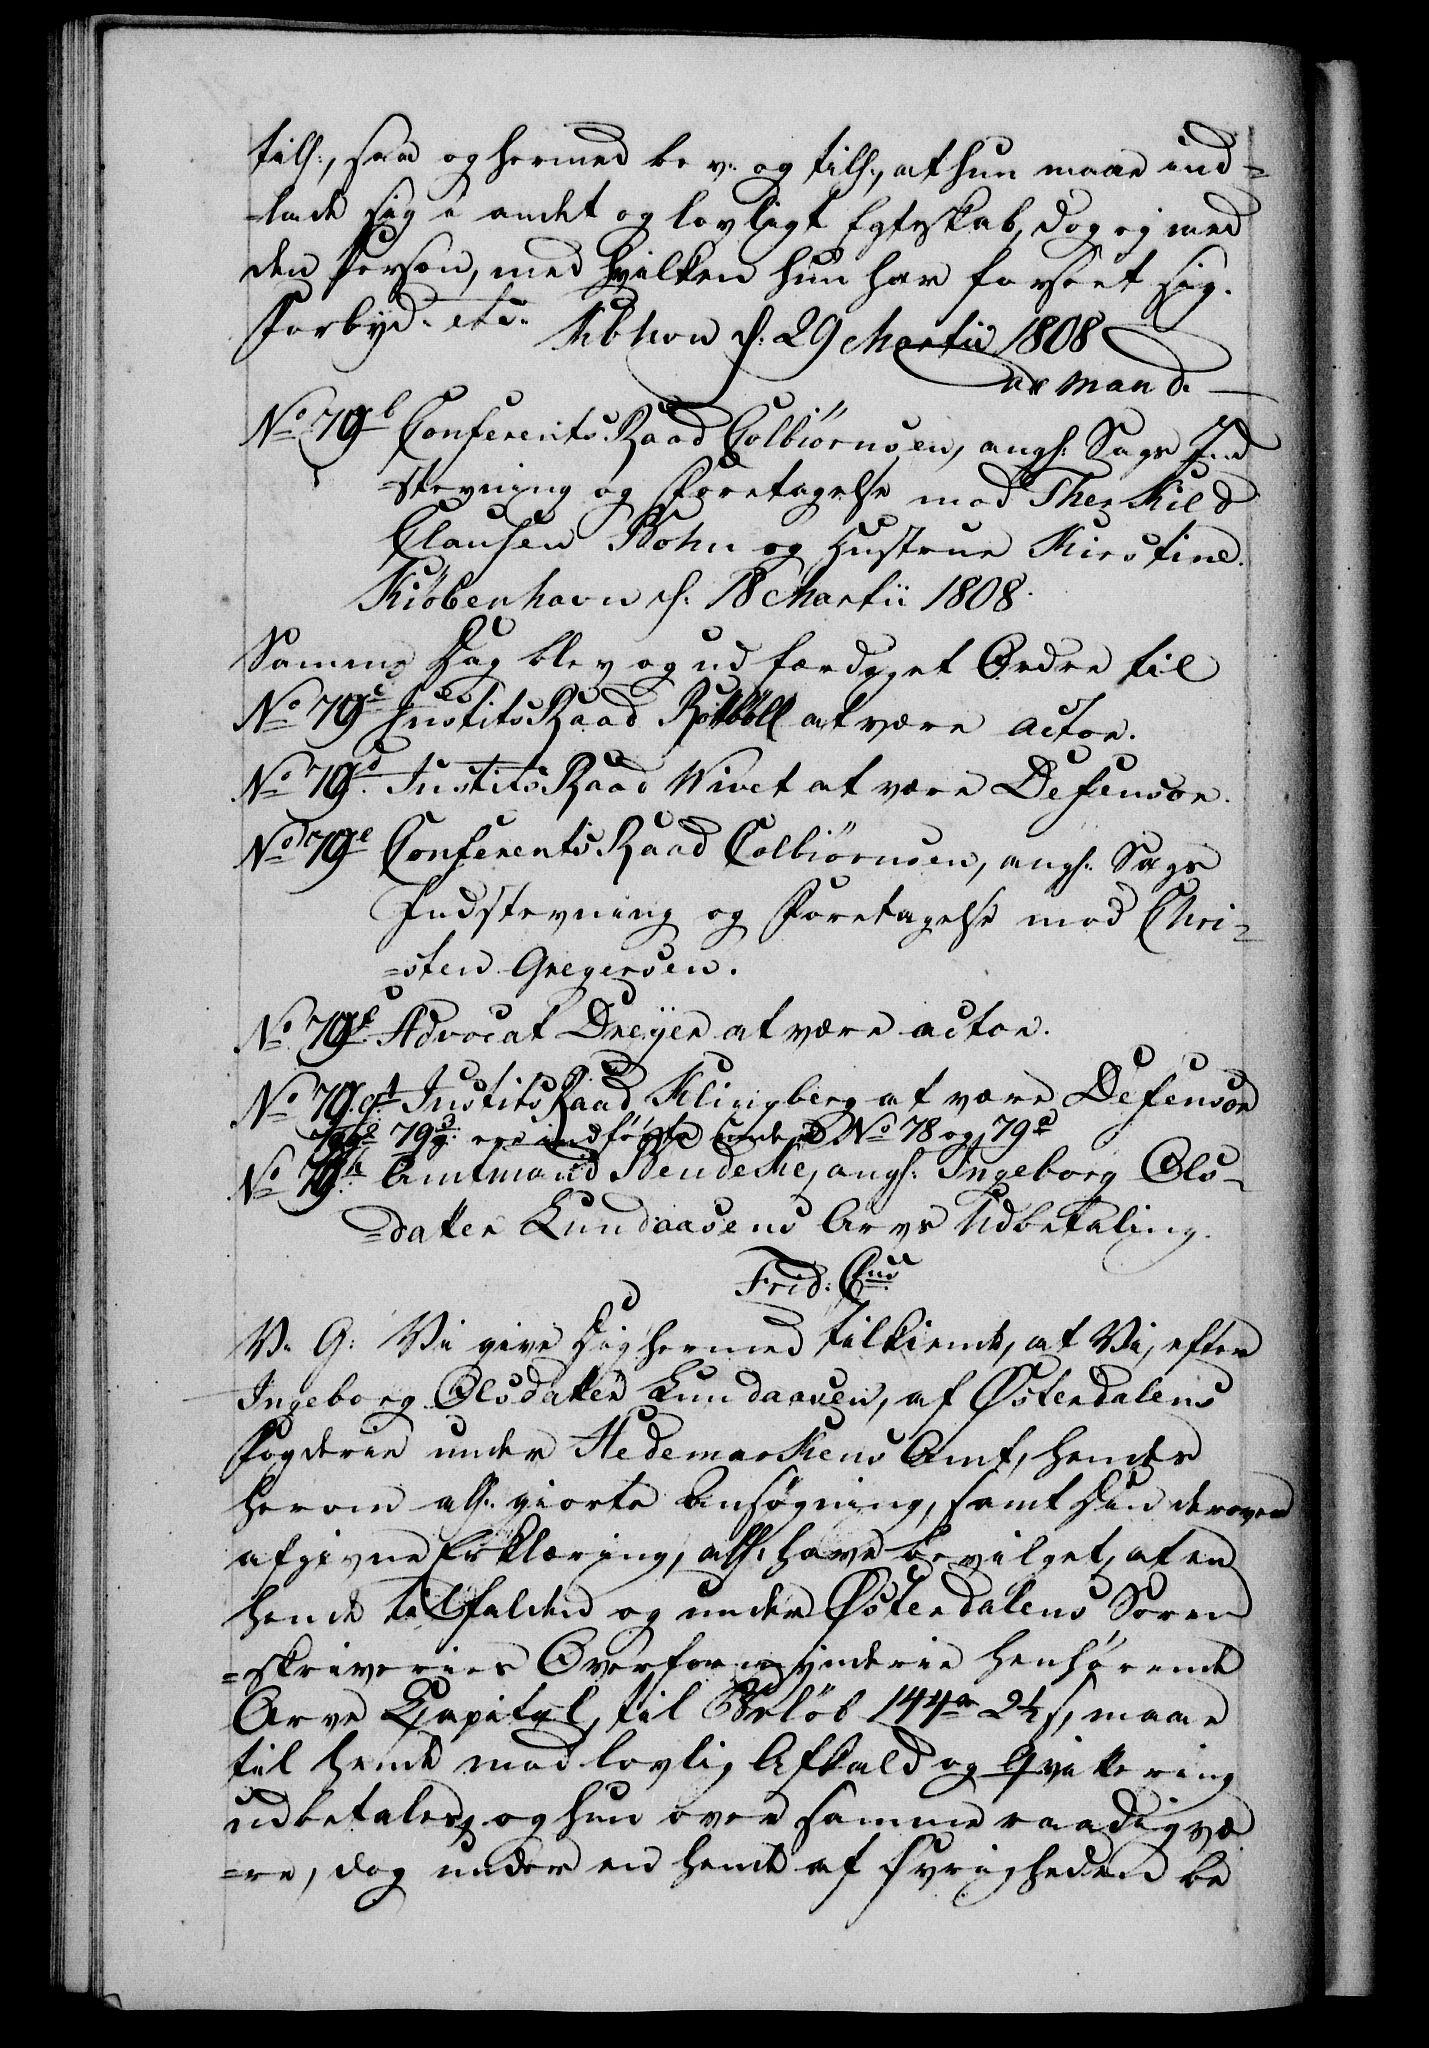 till:, saa og hermed bev: og till:, at hun maae ind=
=lade sig i andet og lovligt Egteskab, dog ej med
den Person, med hvilken hun har forseet sig.
Forbyd. etc. Kbhon d: 29 Martii 1808
ar mand.
No 79b Conferents Raad Colbiörnsen, angl: Sags Ind
=stevning og Foretagelse mod Therkild
Clausen Bohn og Hustrue Kirstine.
Kiöbenhavn d: 18 Martii 1808.
Samme Dag blev og udfærdyget Ordre til
No 79c Justits Raad Rottböll at være actor.
No 79d. Justits Raad Wivet at være Defensor.
No 79e Conferents Raad Colbiörnsen, angl: Sags
Indstevning og Foretagelse mod Chri=
=sten Gregersen.
No 79f. Advocat Dreÿer at være actor.
No 79.g. Justits Raad Klingberg at være Defensor
79g. ere indförte under No 78 og 79a
No 79h. Amtmand Bendeke, angl: Ingeborg Ols=
=datter Lundaasens Arvs Udbetaling.
Frid: Ctus
V. G: Vi give Dig hermed tilkiende, at Vi, efter
Ingeborg Olsdatter Lundaasen, af Østerdalens
Fogderie under Hedemarkens Amt, hendes
herom all: giorte Ansøgning, samt Din derover
afgivne Erklæring, all: have bevilget, at en
hende tilfalden og under Østerdalens Soren
=skriveries Overformynderie henhørende
Arve Capital, til Beløb 144 rd 2½ s, maae
til hende mod lovlig Afkald og Qvittering
udbetales, og hun over samme raadig væ
=re, dog under en hende af Øvrigheden be